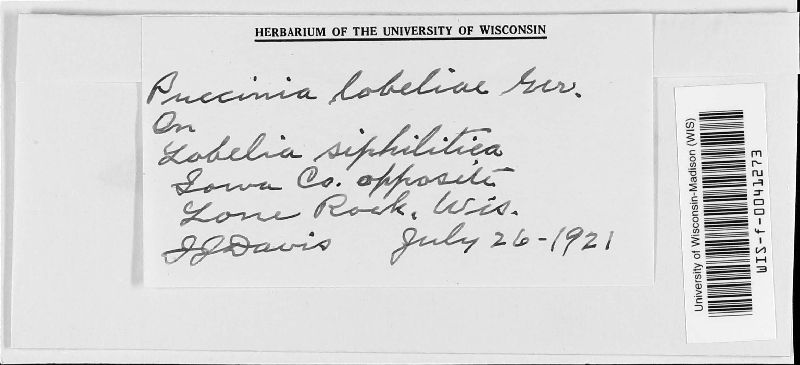 HERBARIUM OF THE UNIVERSITY OF WISCONSIN
Puccinia lobeliae Ger.
On
Lobelia siphilitica
Iowa Co. opposite
Lone Rock, Wis.
JJDavis July 26-1921
University of Wisconsin-Madison (WIS)
WIS-f-0041273